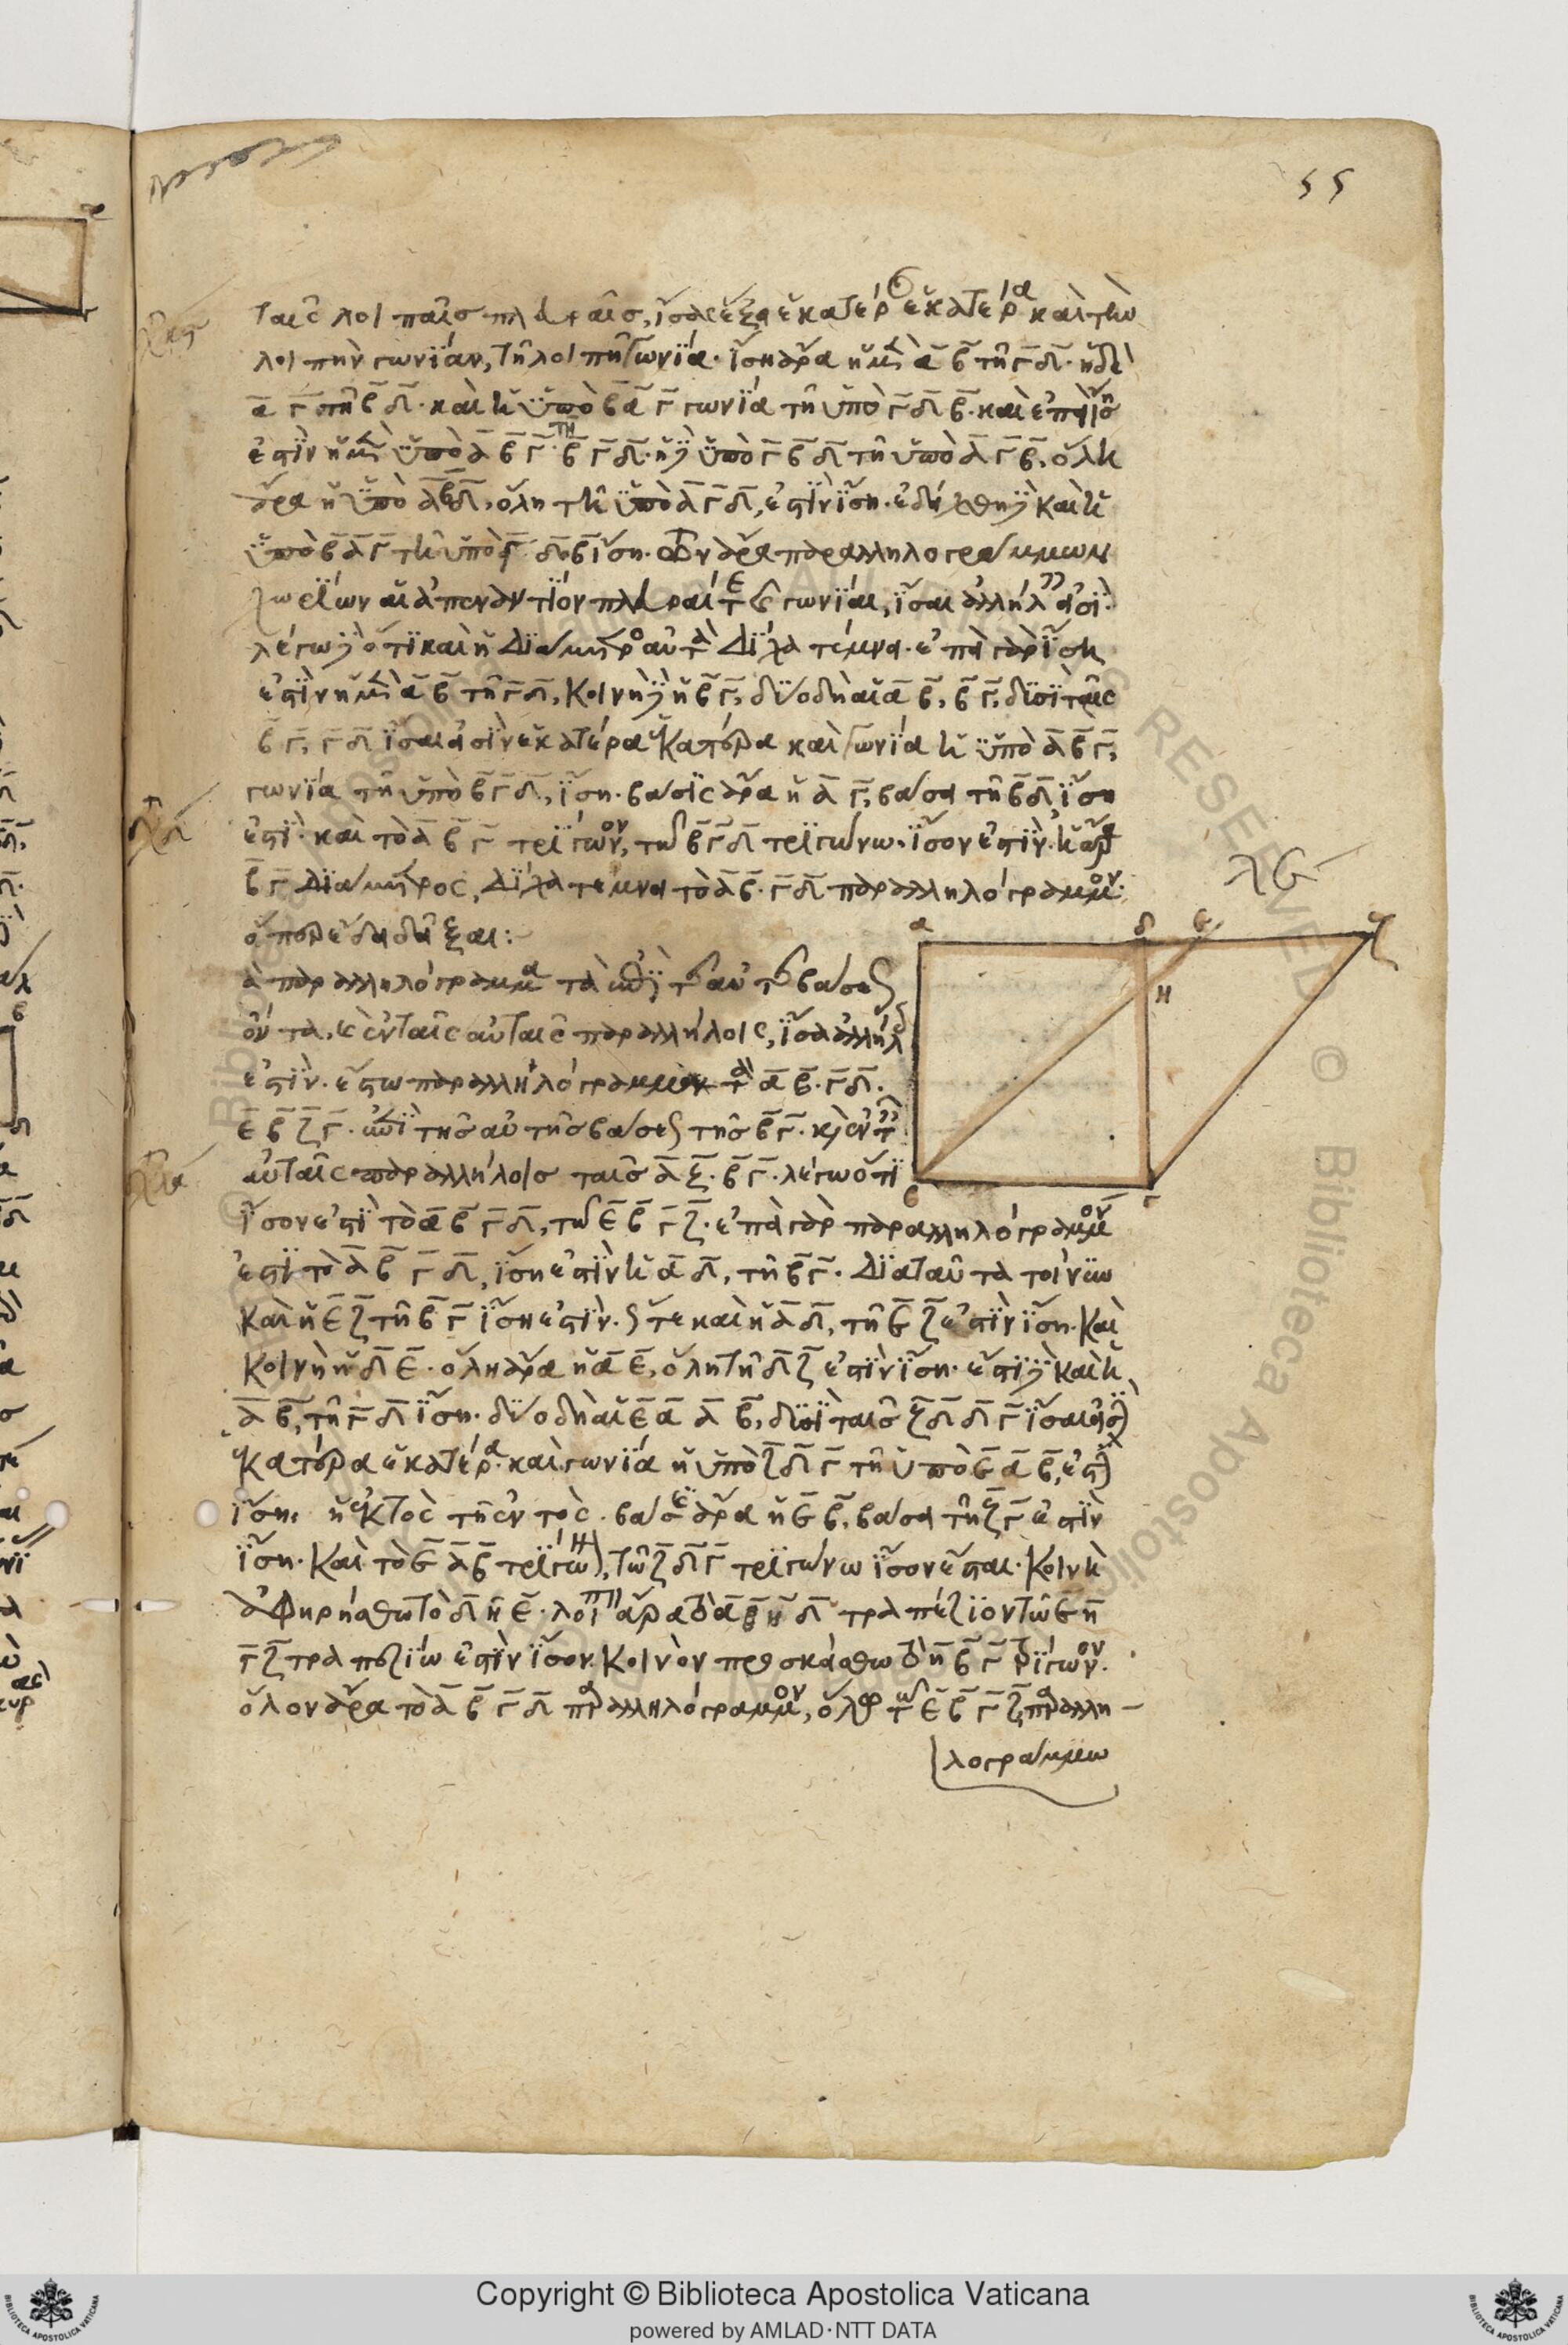 55
ταῖς λοιπαῖς πλευραῖς, ἴσας ἕξει ἑκατέραν ἑκατέρα καὶ τὴν
λοιπὴν γωνίαν, τῆ λοιπῆ γωνία. ἴση ἄρα ἡ μὲν α β τῆ γ δ. ἡ δὲ
α γ τῆ β δ. καὶ ἡ ὑπὸ β α γ γωνία τῆ ὑπὸ γ δ β. καὶ ἐπεὶ ἴση
ἐστὶν ἡ μὲν ὑπὸ α β γ τῆ β γ δ. ἡ δὲ ὑπὸ γ β δ τῆ ὑπὸ α γ β, ὅλη
ἄρα ἡ ὑπὸ α β δ, ὅλη τῆ ὑπὸ α γ δ, ἐστὶν ἴση. ἐδείχθη δὲ καὶ ἡ
ὑπὸ β α γ τῆ ὑπὸ γ δ β ἴση. τῶν ἄρα παραλληλογράμμων
χωρίων αἱ ἀπεναντίον πλευραί τε καὶ γωνίαι, ἴσαι ἀλλήλαις εἰσί.
λέγω δὲ ὅτι καὶ ἡ διάμετρος αὐτὰ δίχα τέμνει. ἐπεὶ γὰρ ἴση
ἐστὶν ἡ μὲν α β τῆ γ δ, κοινὴ δὲ ἡ β γ, δύο δὴ αἱ α β, β γ, δυσὶ ταῖς
β γ, γ δ ἴσαι εἰσὶν ἑκατέρα ἑκατέρα καὶ γωνία ἡ ὑπὸ α β γ,
γωνία τῆ ὑπὸ β γ δ, ἴση. βάσις ἄρα ἡ α γ, βάσει τῆ β δ ἴση
ἐστί. καὶ τὸ α β γ τρίγωνον, τῶ β γ δ τριγώνω. ἴσον ἐστίν. ἡ ἄρα
β γ διάμετρος, δίχα τέμνει τὸ α β. γ δ παραλληλόγραμμον.
ὅπερ ἔδει δεῖξαι:
λε
α δ ε ζ
η
β γ
ὰ παραλληλόγραμμα τὰ ἐπὶ τῆς αὐτῆς βάσεως
ὄντα, καὶ ἐν ταῖς αὐταῖς παραλλήλοις, ἴσα ἀλλήλοις
ἐστίν. ἔστω παραλληλόγραμμα τὰ α β. γ δ.
ε β ζ γ. ἐπὶ τῆς αὐτῆς βάσεως τῆς β γ. καὶ ἐν ταῖς
αὐταῖς παραλλήλοις ταῖς α ζ. β γ. λέγω ὅτι
ἴσον ἐστὶ τὸ α β γ δ, τῶ ε β γ ζ. ἐπεὶ γὰρ παραλληλόγραμμον
ἐστὶ τὸ α β γ δ, ἴση ἐστὶν ἡ α δ, τῆ β γ. διὰ ταῦτα τοίνυν
καὶ ἡ ε ζ τῆ β γ ἴση ἐστίν. ὥστε καὶ ἡ α δ, τῆ ε ζ ἐστὶν ἴση. καὶ
κοινὴ ἡ δ ε. ὅλη ἄρα ἡ α ε, ὅλη τῆ δ ζ ἐστὶν ἴση. ἔστι δὲ καὶ ἡ
α β, τῆ γ δ ἴση. δύο δὴ αἱ ε α α β, δυσὶ ταῖς ζ δ δ γ ἴσαι εἰσὶν
ἑκατέρα ἑκατέρα. καὶ γωνία ἡ ὑπὸ ζ δ γ τῆ ὑπὸ ε α β, ἐστὶν
ἴση. ἡ ἐκτὸς τῆ ἐντός. βάσις ἄρα ἡ ε β, βάσει τῆ ζ γ ἐστὶν
ἴση. καὶ τὸ ε α β τρίγωνον, τῶ ζ δ γ τριγώνω ἴσον ἔσται. κοινὴ
ἀφηρήσθω τὸ δ η ε. λοιπὸν ἄρα τὸ α β η δ τραπέζιον τῶ ε η
γ ζ τραπεζίω ἐστὶν ἴσον. κοινὸν προσκείσθω τὸ η β γ τρίγωνον.
ὅλον ἄρα τὸ α β γ δ παραλληλόγραμμον, ὅλω τῶ ε β γ ζ παραλλη-
λογράμμω
Copyright © Biblioteca Apostolica Vaticana
powered by AMLAD·NTT DATA